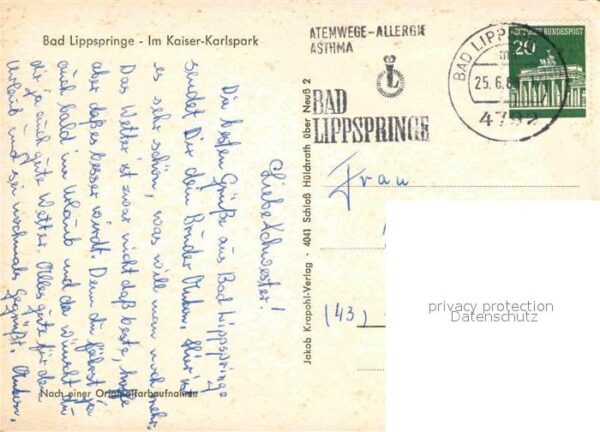 Bad Lippspringe - Im Kaiser-Karlspark
ATEMWEGE-ALLERGIE
ASTHMA
L
BAD
LIPPSPRINGE
BAD LIPP
25.6.6
4792
DEUTSCHE BUNDESPOST
20
Liebe Schwester!
Die besten Grüße aus Bad Lippspringe
sendet Dir dein Bruder Anton. Hier ist
es sehr schön, was will man noch mehr.
Das Wetter ist zwar nicht daß beste, hoffe
aber daß es besser wirdt. Denn du fährst ja
auch bald im Urlaub und da wünscht du
dir ja auch gute Wetter. Alles gute für den
Urlaub und sei nochmals Gegrüßt. Anton.
Jakob Krapohl-Verlag · 4041 Schloß Hülchrath über Neuß 2
Nach einer Originalfarbaufnahme
Frau
(43)
privacy protection
Datenschutz